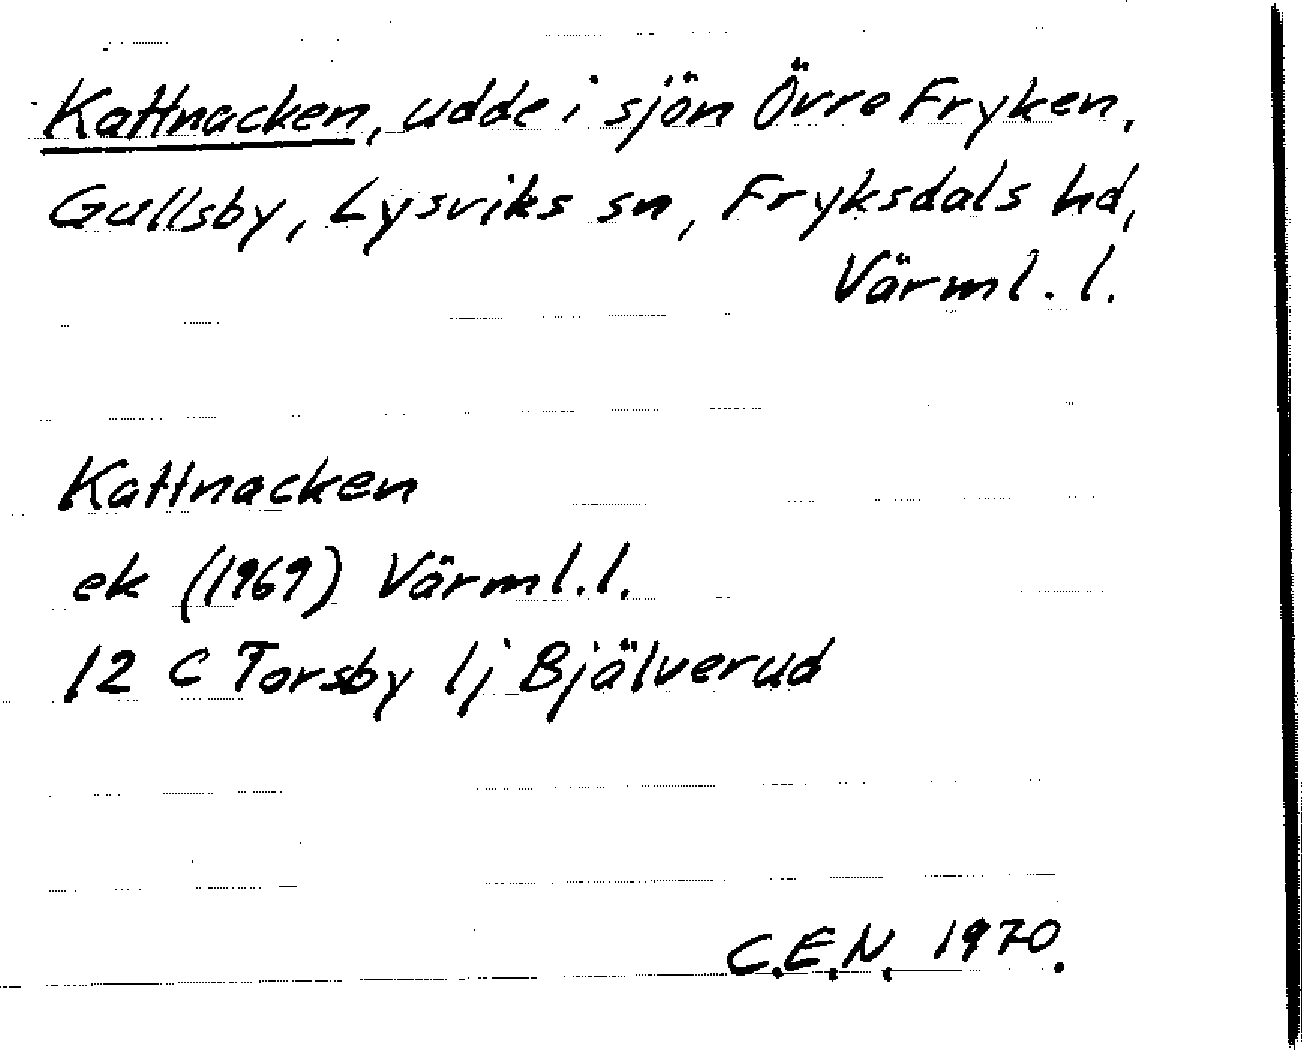 Kattnacken, udde i sjön Övre Fryken,
Gullsby, Lysviks sn, Fryksdals hd,
Värml. l.
Kattnacken
ek (1969) Värml. l.
12 C Torsby lj Bjälverud
C.E.N. 1970.